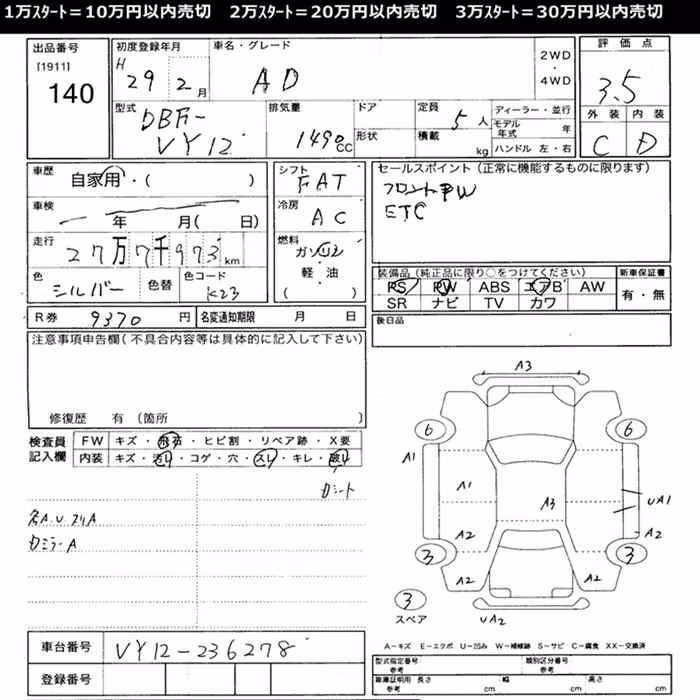 1万ｽﾀｰﾄ＝10万円以内売切　2万ｽﾀｰﾄ＝20万円以内売切　3万ｽﾀｰﾄ＝30万円以内売切
出品番号
[1911]
140
初度登録年月
H 29年 2月
車名・グレード
AD
2WD
・
4WD
評価点
3.5
外装 内装
C D
型式
DBF-
VY12
排気量
1490cc
ドア
形状
定員 5人
積載 kg
ディーラー・並行
モデル年式 年
ハンドル 左・右
車歴
自家用・( )
車検
年 月( 日)
走行
27万7千973km
色
シルバー
色替
色コード
K23
シフト
FAT
冷房
AC
燃料
ガソリン
軽油
( )
セールスポイント (正常に機能するものに限ります)
フロントPW
ETC
装備品 (純正品に限り○をつけてください)
PS PW ABS エアB AW
SR ナビ TV カワ
新車保証書
有・無
R券 9370円
名変通知期限 月 日
後日品
注意事項申告欄(不具合内容等は具体的に記入して下さい)
修復歴 有 (箇所 )
検査員
記入欄
FW キズ・飛石・ヒビ割・リペア跡・X要
内装 キズ・汚レ・コゲ・穴・スレ・キレ・破レ
シート
A.U
ミラーA
A3
6 6
A1
A1
A3
UA1
A2 A2
3 3
A2 A2
3
スペア
UA2
車台番号 VY12-236278
登録番号
A－キズ E－エクボ U－凹み W－補修跡 S－サビ C－腐食 XX－交換済
型式指定番号
参考
類別区分番号
参考
車庫証明用 長さ cm 幅 cm 高さ cm
参考